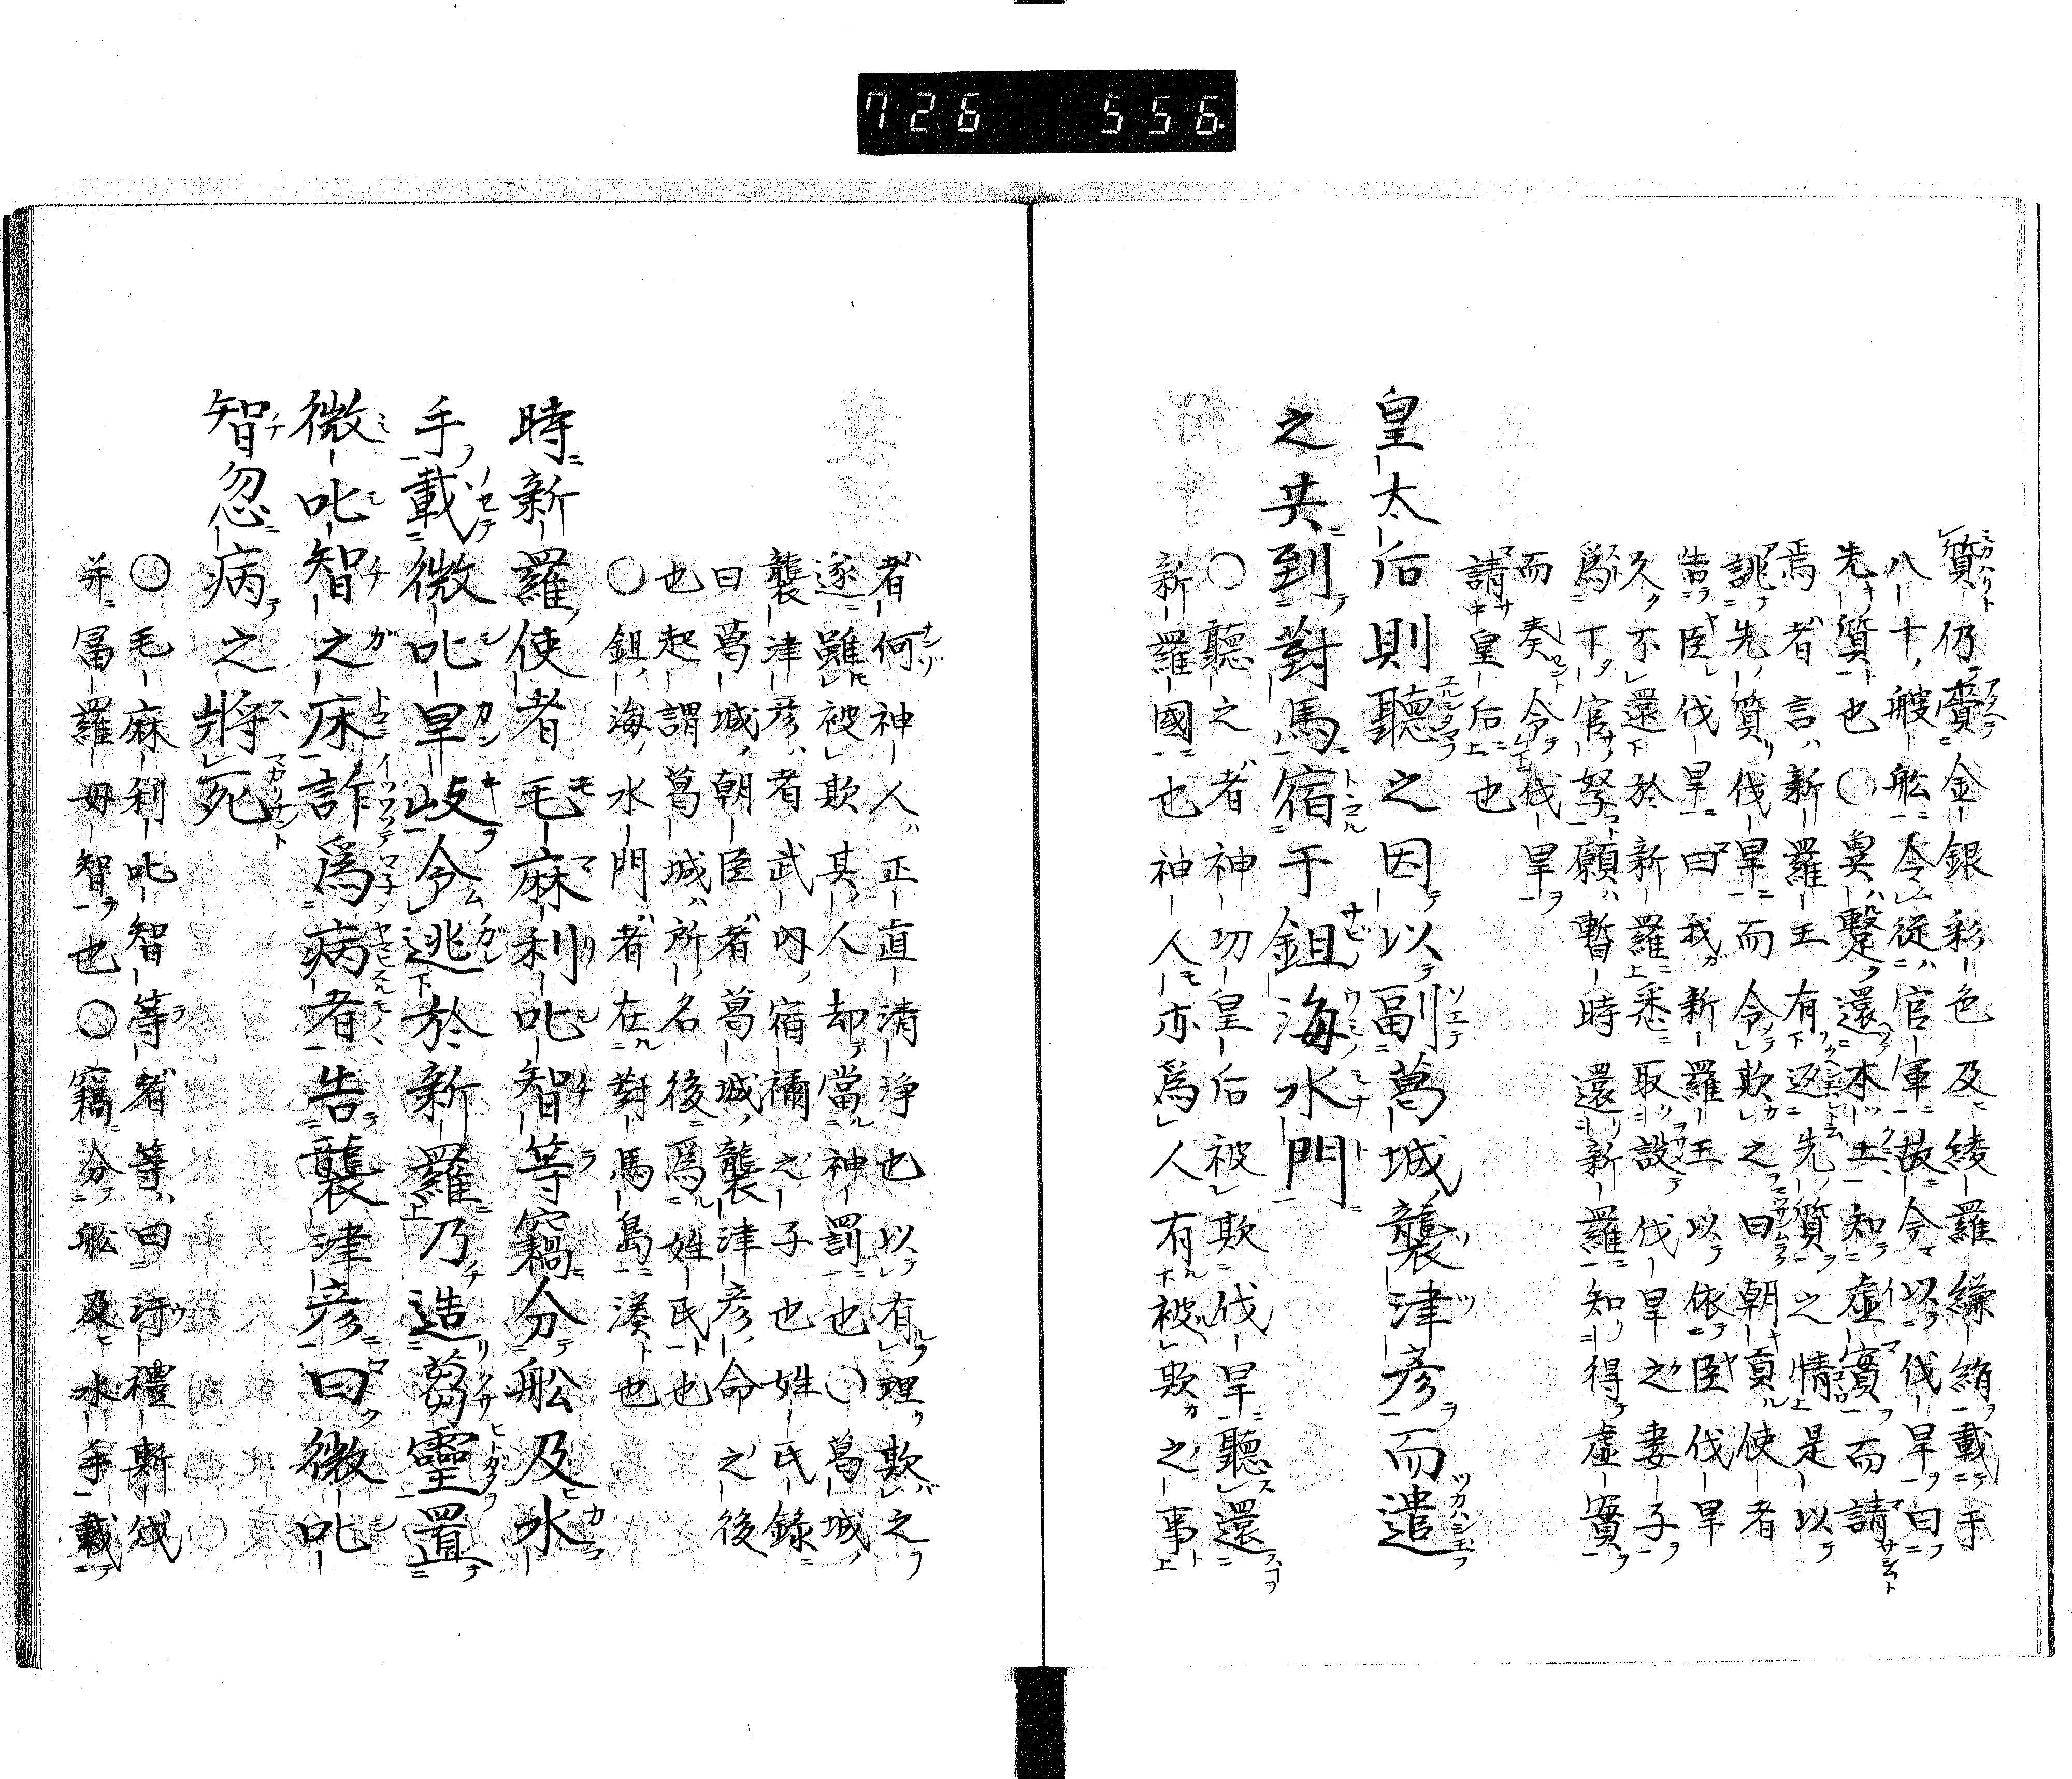 726 556.
質仍賷金銀彩色及綾羅縑絹載于
八十艘船令從官軍故今以伐旱曰
先質也○奧蹔還本土知虛實而請
焉者言新羅王有返先質之情是以
誂先質伐旱而令欺之曰朝貢使者
告臣伐旱曰我新羅王以依臣伐旱
久不還於新羅悉取設伐旱之妻子
爲下官孥願暫時還新羅知得虛實
而奏令伐旱
請皇后也
皇太后則聽之因以副葛城襲津彥而遣
之共到對馬宿于鉏海水門
○聽之者神功皇后被欺伐旱聽還
新羅國也神人亦爲人有被欺之事
者何神人正直清淨也以有理欺之
逐雖被欺其人却當神罰也○葛城
襲津彥者武內宿禰之子也姓氏錄
曰葛城朝臣者葛城襲津彥命之後
也起謂葛城所名後爲姓氏也
○鉏海水門者在對馬島湊也
時新羅使者毛麻利叱智等竊分船及水
手載微叱旱岐令逃於新羅乃造蒭靈置
微叱智之床詐爲病者告襲津彥曰微叱
智忽病之將死
○毛麻利叱智等者等曰汙禮斯伐
并冨羅母智也○竊分船及水手載